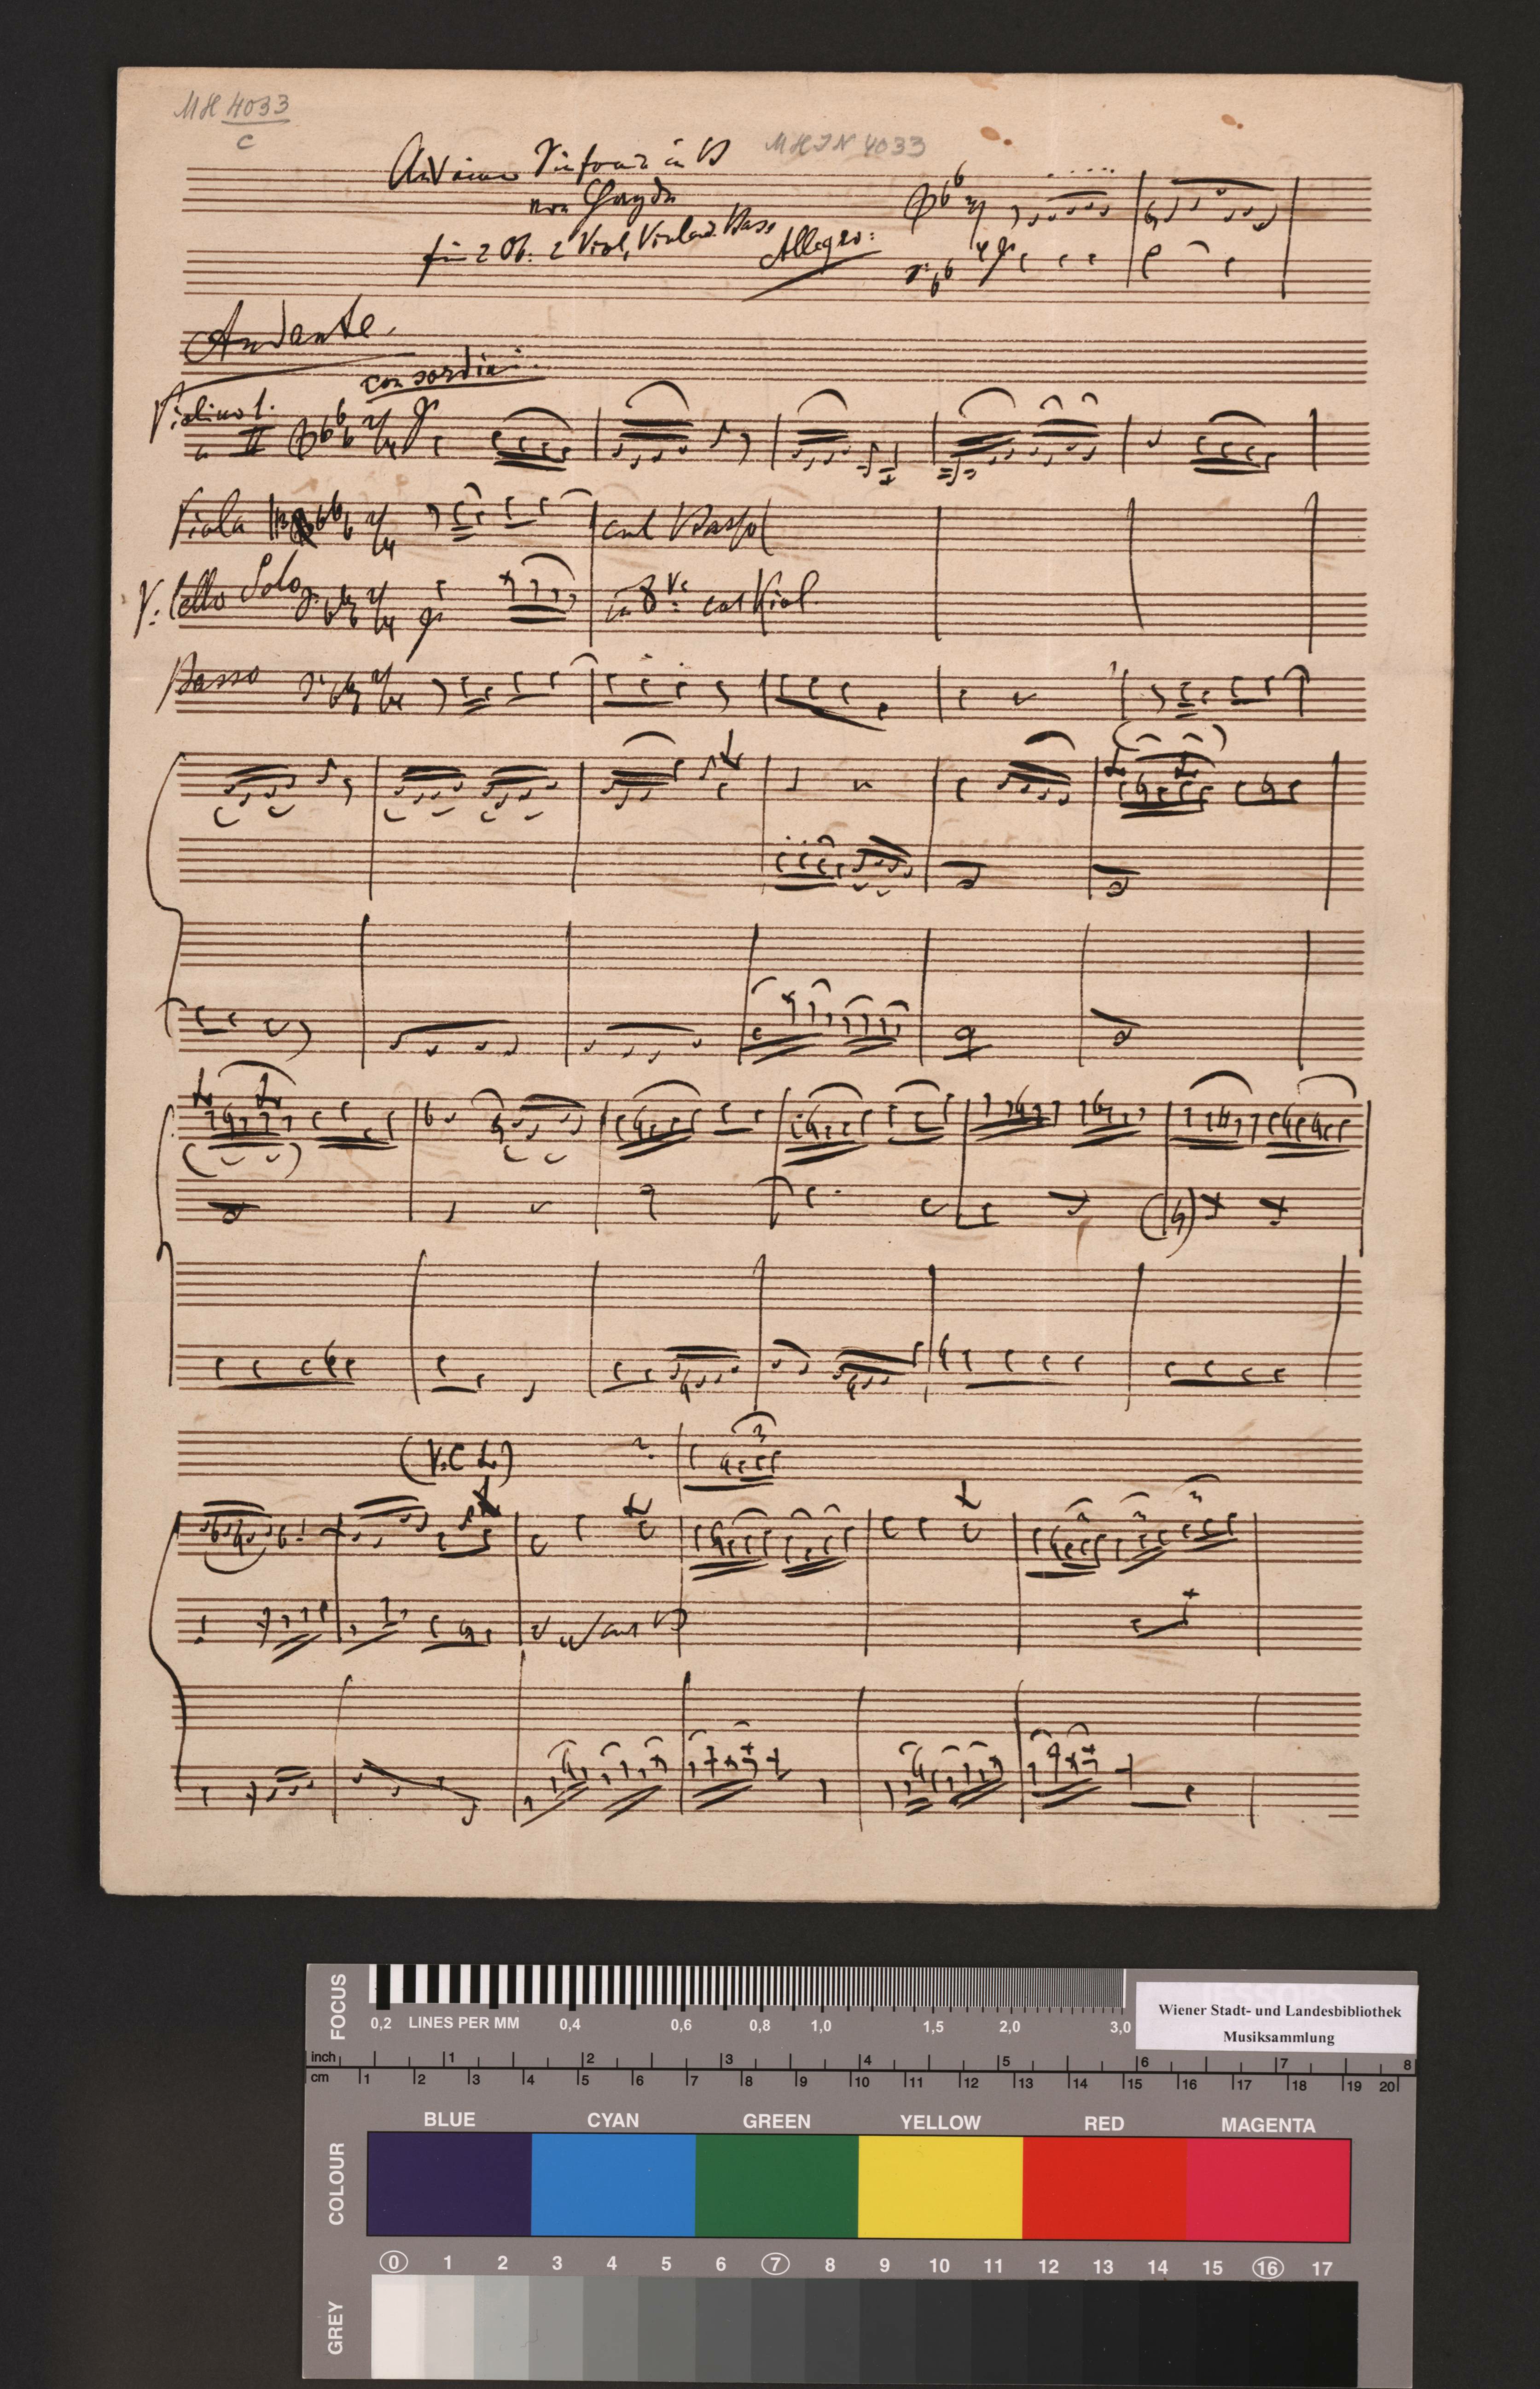 MH 4033
c
MHIN 4033
Aus einer Sinfonie in B
von Haydn
für 2 Ob: 2 Viol, Viola u. Bass
Allegro:
Andante
con sordini
Violino 1.
u II
Viola
col Basso
V. Cello Solo
in 8va col Viol.
Basso
(V.C.)
FOCUS
0,2 LINES PER MM 0,4 0,6 0,8 1,0 1,5 2,0 3,0
Wiener Stadt- und Landesbibliothek
Musiksammlung
inch 1 2 3 4 5 6 7 8
cm 1 2 3 4 5 6 7 8 9 10 11 12 13 14 15 16 17 18 19 20
COLOUR
BLUE CYAN GREEN YELLOW RED MAGENTA
0 1 2 3 4 5 6 7 8 9 10 11 12 13 14 15 16 17
GREY